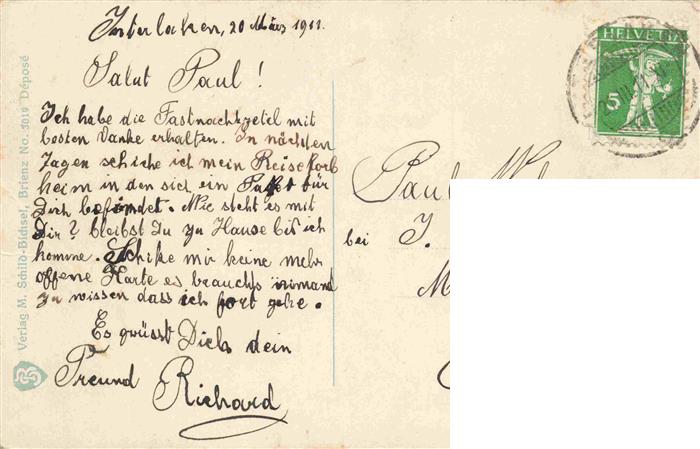 Interlaken, 20 März 1911.
Salut Paul !
Ich habe die Fastnachtzetel mit
besten Danke erhalten. In nächsten
Tagen schicke ich mein Reisekorb
heim in den sich ein Paket für
Dich befindet. Wie steht es mit
Dir ? bleibst Du zu Hause bis ich
komme. Schike mir keine mehr
offene Karte es brauchs niemand
zu wissen dass ich fort gehe.
Es grüsst Dich dein
Freund Richard
Verlag M. Schild-Bichsel, Brienz No. 3019 Déposé
HELVETIA
5
Paul
bei J.
M